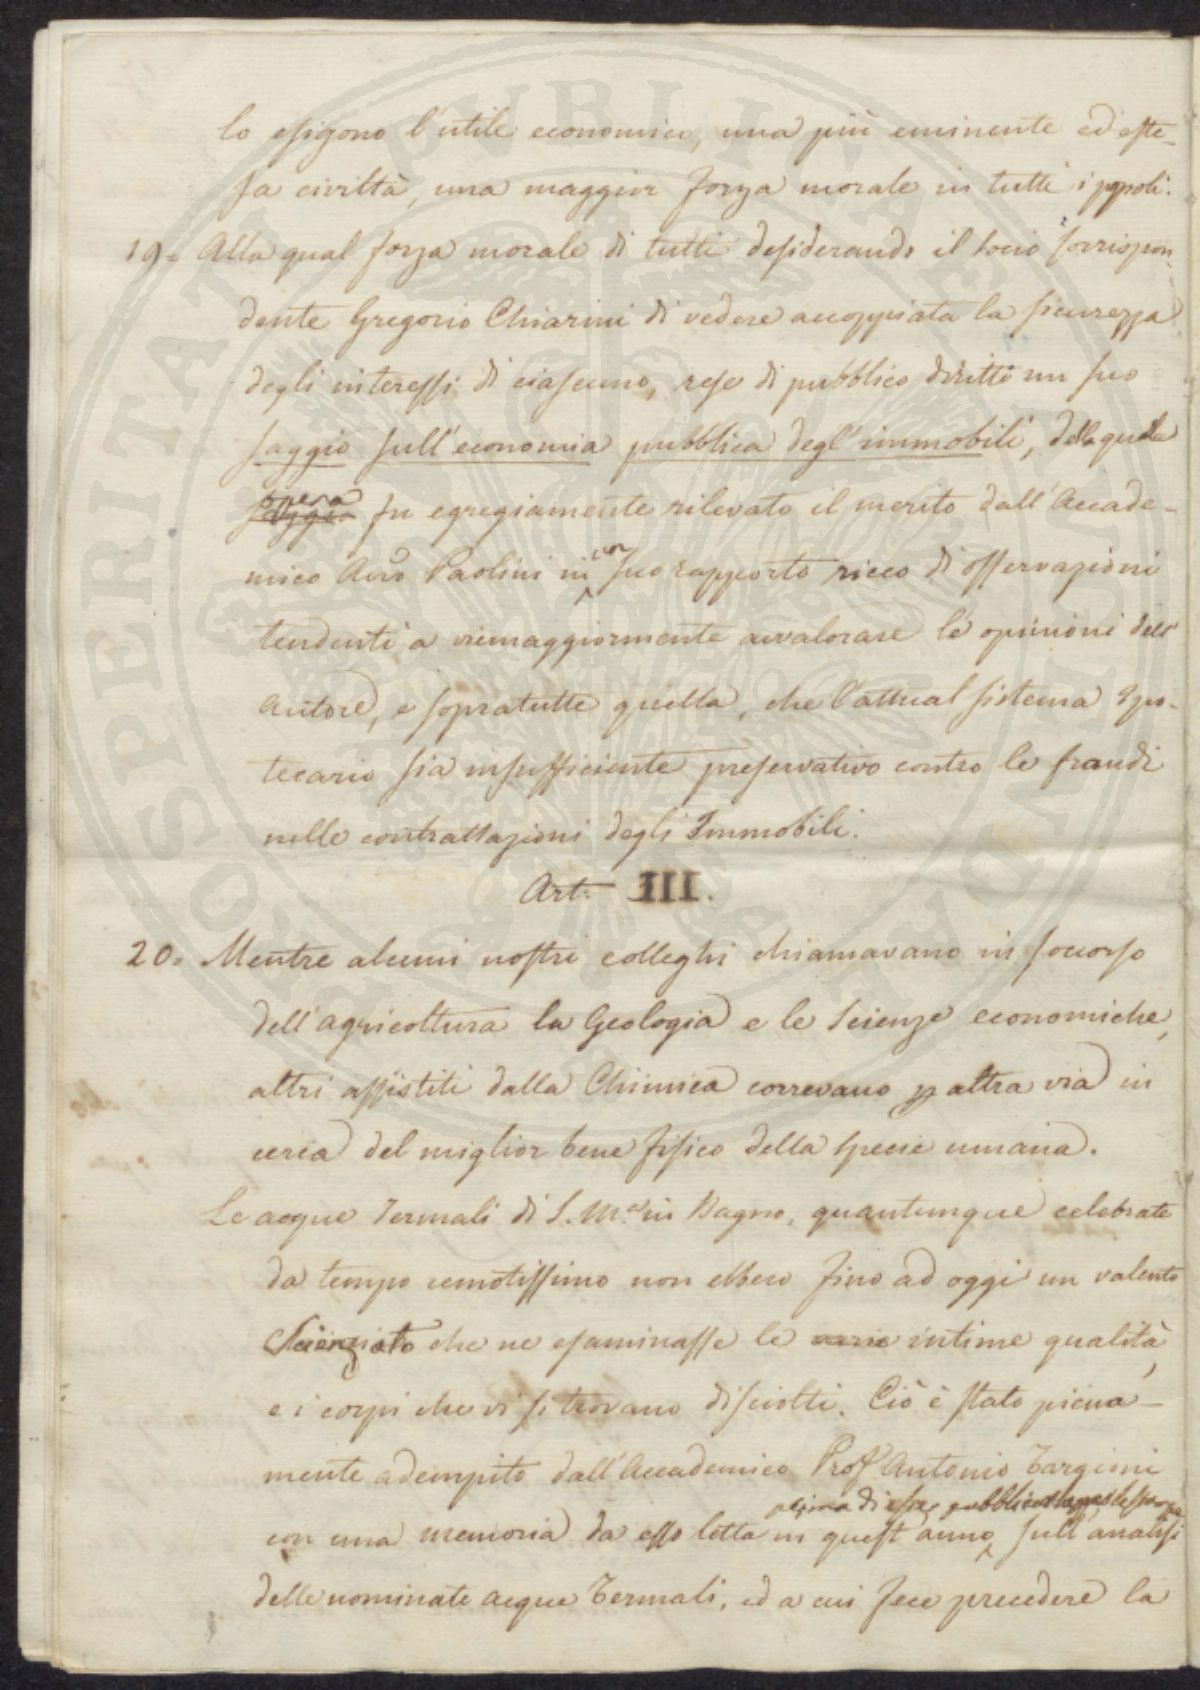 lo esigono l'utile economico, una più eminente ed este-
sa civiltà, una maggior forza morale in tutti i popoli.
19. Alla qual forza morale di tutti desiderando il Socio Corrispon-
dente Gregorio Chiarini di vedere accoppiata la sicurezza
degli interessi di ciascuno, rese di pubblico diritto un suo
saggio sull'economia pubblica degl'immobili, della quale
opera
saggio fu egregiamente rilevato il merito dall'Accade-
mico Avv.o Paolini in un suo rapporto ricco di osservazioni
tendenti a viemaggiormente avvalorare le opinioni dell'
autore, e sopratutto quella, che l'attual sistema Ipo-
tecario sia insufficiente preservativo contro le fraudi
nelle contrattazioni degli Immobili.
Art. III.
20. Mentre alcuni nostri colleghi chiamavano in soccorso
dell'agricoltura la Geologia e le Scienze economiche,
altri assistiti dalla Chimica correvano p altra via in
cerca del miglior bene fisico della specie umana.
Le acque Termali di S. M.a in Bagno, quantunque celebrate
da tempo remotissimo non ebbero fino ad oggi un valente
Scienziato che ne esaminasse le varie intime qualità,
e i corpi che vi si trovano disciolti. Ciò è stato piena-
mente adempito dall'Accademico Prof. Antonio Targioni
prima di esser pubblicata
con una memoria da esso letta in quest'anno sull'analisi
delle nominate acque Termali, ed a cui fece precedere la
PROSPERITATI PVBLICAE